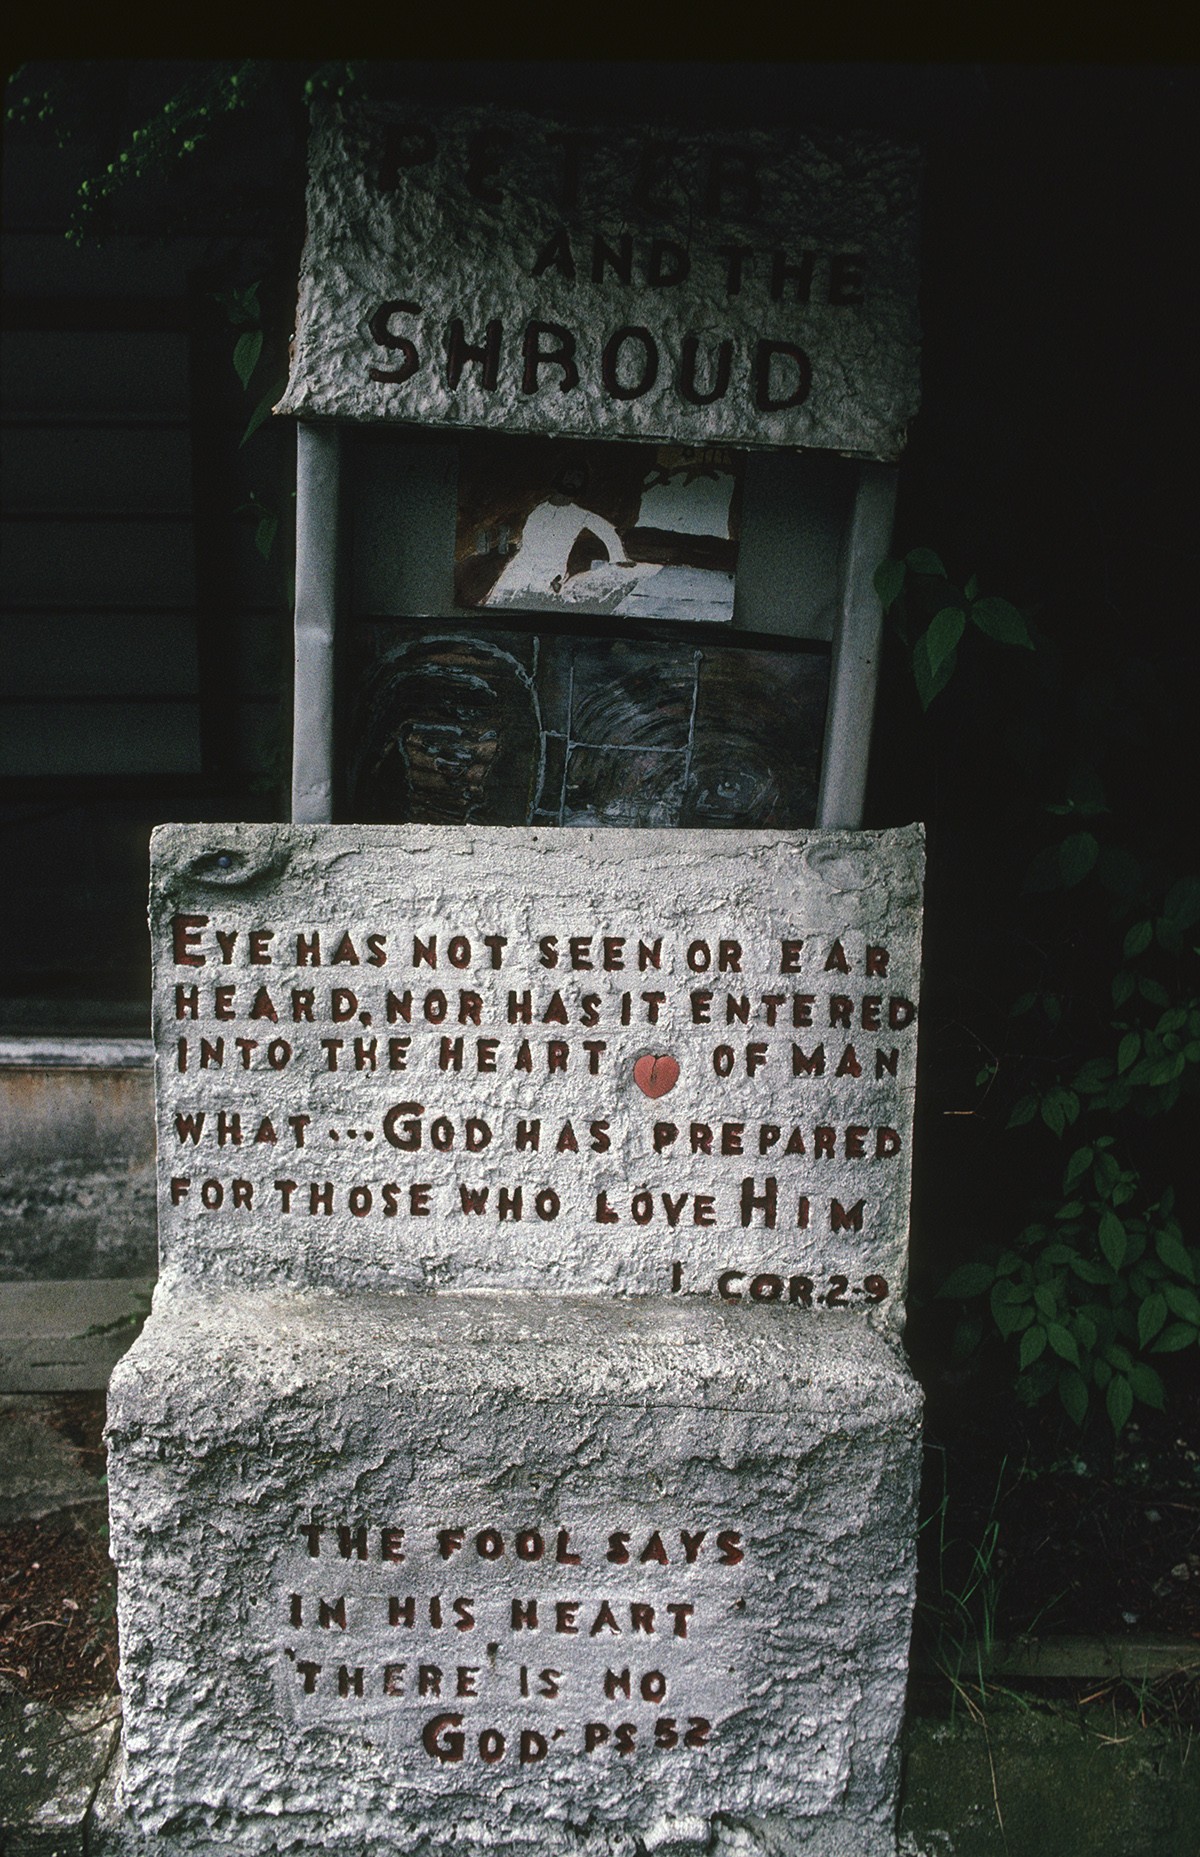 PETER
AND THE
SHROUD
EYE HAS NOT SEEN OR EAR
HEARD, NOR HAS IT ENTERED
INTO THE HEART OF MAN
WHAT...GOD HAS PREPARED
FOR THOSE WHO LOVE HIM
1 COR. 2-9
THE FOOL SAYS
IN HIS HEART
'THERE' IS NO
GOD' PS 52